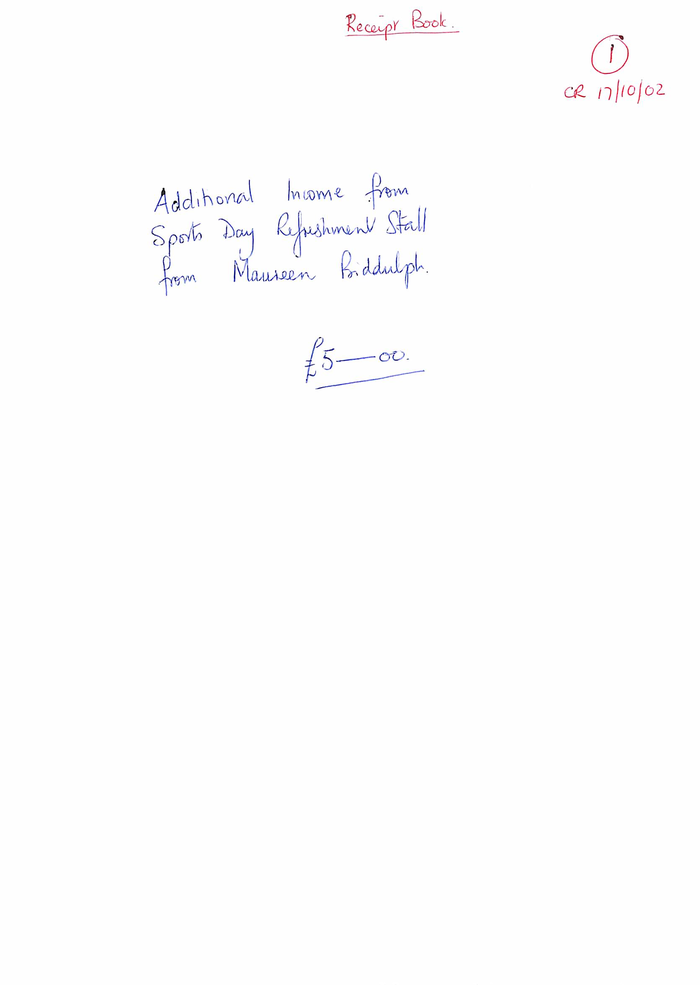 Receipt Book.
1
CR 17/10/02
Additional Income from
Sports Day Refreshment Stall
from Maureen Biddulph.
£5—00.